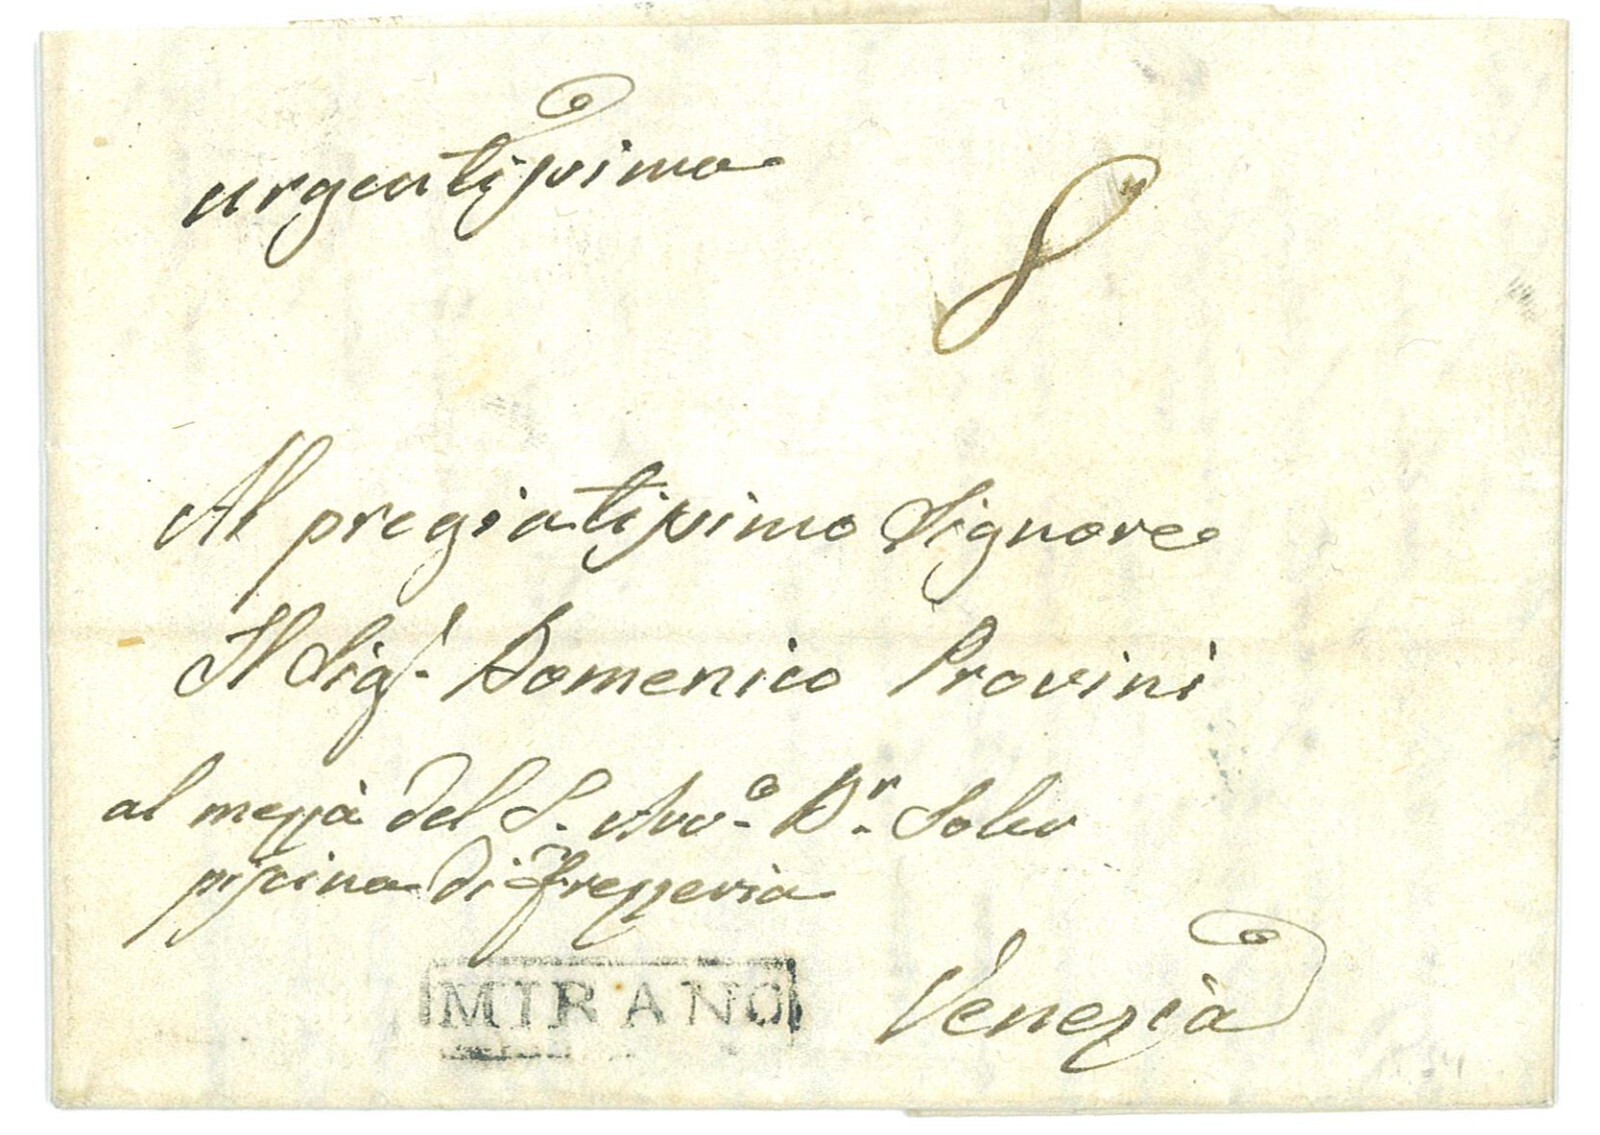 urgentissima
8
Al pregiatissimo Signore
Il Sigr. Domenico Provini
al mezzà del S. Avvo. Dr.
piscina di Frezzeria
Venezia
MIRANO